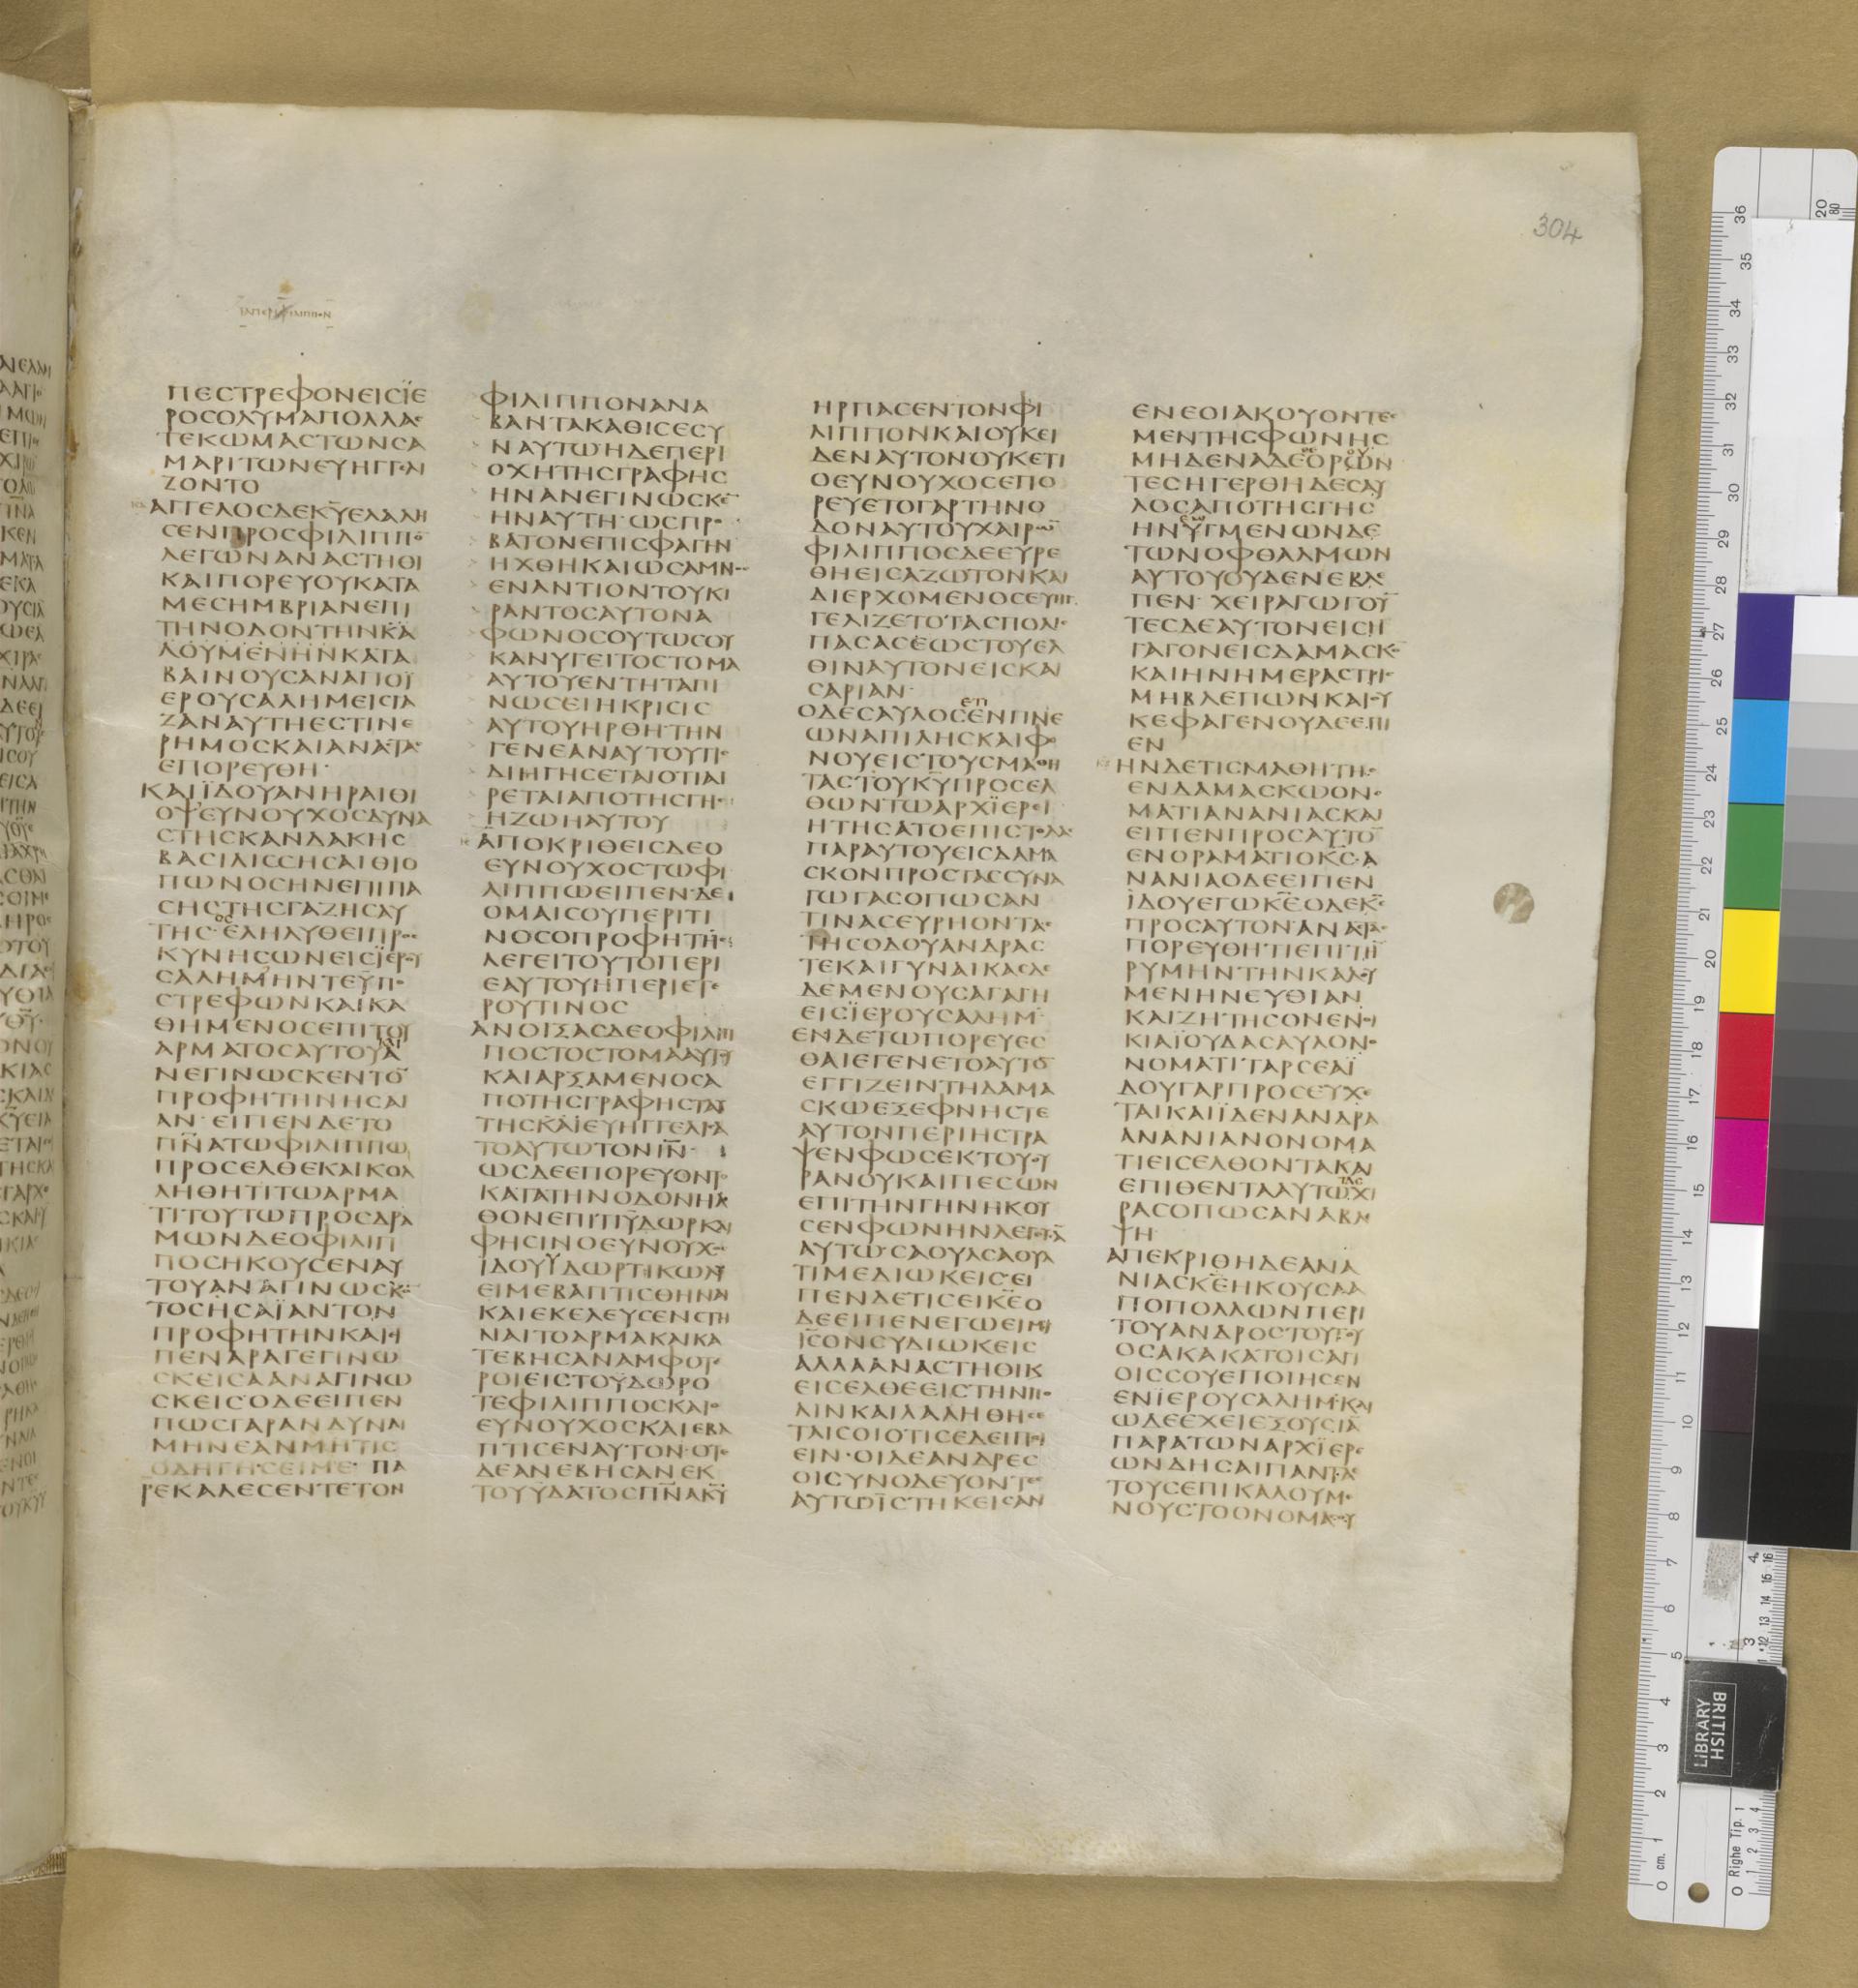 304
ΠΕСΤΡΕΦΟΝΕΙСΪΕ
ΡΟСΟΛΥΜΑΠΟΛΛΑС
ΤΕΚΩΜΑСΤΩΝСΑ
ΜΑΡΙΤΩΝΕΥΗΓΓΕΛΙ
ΖΟΝΤΟ
ΑΓΓΕΛΟСΔΕΚ̅Υ̅ΕΛΑΛΗ
СΕΝΠΡΟСΦΙΛΙΠΠΟ̅
ΛΕΓΩΝΑΝΑСΤΗΘΙ
ΚΑΙΠΟΡΕΥΟΥΚΑΤΑ
ΜΕСΗΜΒΡΙΑΝΕΠΙ
ΤΗΝΟΔΟΝΤΗΝΚΑ
ΛΟΥΜΕΝΗΝΚΑΤΑ
ΒΑΙΝΟΥСΑΝΑΠΟΪ
ΕΡΟΥСΑΛΗΜΕΙСΓΑ
ΖΑΝΑΥΤΗΕСΤΙΝΕ
ΡΗΜΟСΚΑΙΑΝΑСΤΑС
ΕΠΟΡΕΥΘΗ·
ΚΑΙΪΔΟΥΑΝΗΡΑΙΘΙ
ΟΨΕΥΝΟΥΧΟСΔΥΝΑ
СΤΗСΚΑΝΔΑΚΗС
ΒΑСΙΛΙССΗСΑΙΘΙΟ
ΠΩΝΟСΗΝΕΠΙΠΑ
СΗСΤΗСΓΑΖΗСΑΥ
ΤΗС·ΕΛΗΛΥΘΕΙΠΡΟС
ΚΥΝΗСΩΝΕΙСΪΕΡΟΥ
СΑΛΗΜΗΝΤΕΥΠΟ
СΤΡΕΦΩΝΚΑΪΚΑ
ΘΗΜΕΝΟСΕΠΙΤΟΥ
ΑΡΜΑΤΟСΑΥΤΟΥΑ
ΝΕΓΙΝΩСΚΕΝΤΟ̅
ΠΡΟΦΗΤΗΝΗСΑΙ
ΑΝ·ΕΙΠΕΝΔΕΤΟ
Π̅Ν̅ΑΤΩΦΙΛΙΠΠΩ
ΠΡΟСΕΛΘΕΚΑΙΚΟΛ
ΛΗΘΗΤΙΤΩΑΡΜΑ
ΤΙΤΟΥΤΩΠΡΟСΔΡΑ
ΜΩΝΔΕΟΦΙΛΙΠ
ΠΟСΗΚΟΥСΕΝΑΥ
ΤΟΥΑΝΑΓΙΝΩСΚΟ̅
ΤΟСΗСΑΪΑΝΤΟΝ
ΠΡΟΦΗΤΗΝΚΑΙΕΙ
ΠΕΝΑΡΑΓΕΓΙΝΩ
СΚΕΙСΑΑΝΑΓΙΝΩ
СΚΕΙСΟΔΕΕΙΠΕΝ
ΠΩСΓΑΡΑΝΔΥΝΑΙ
ΜΗΝΕΑΝΜΗΤΙС
ΟΔΗΓΗСΕΙΜΕ·ΠΑ
ΡΕΚΑΛΕСΕΝΤΕΤΟΝ
ΦΙΛΙΠΠΟΝΑΝΑ
ΒΑΝΤΑΚΑΘΙСΕСΥ
ΝΑΥΤΩΗΔΕΠΕΡΙ
ΟΧΗΤΗСΓΡΑΦΗС
ΗΝΑΝΕΓΙΝΩСΚΕ̅
ΗΝΑΥΤΗ·ΩСΠΡΟ
ΒΑΤΟΝΕΠΙСΦΑΓΗΝ
ΗΧΘΗΚΑΙΩСΑΜΝΟС
ΕΝΑΝΤΙΟΝΤΟΥΚΙ
ΡΑΝΤΟСΑΥΤΟΝΑ
ΦΩΝΟСΟΥΤΩСΟΥ
ΚΑΝΥΓΕΙΤΟСΤΟΜΑ
ΑΥΤΟΥΕΝΤΗΤΑΠΙ
ΝΩСΕΙΗΚΡΙСΙС
ΑΥΤΟΥΗΡΘΗΤΗΝ
ΓΕΝΕΑΝΑΥΤΟΥΤΙС
ΔΙΗΓΗСΕΤΑΙΟΤΙΑΙ
ΡΕΤΑΙΑΠΟΤΗСΓΗС
ΗΖΩΗΑΥΤΟΥ
ΑΠΟΚΡΙΘΕΙСΔΕΟ
ΕΥΝΟΥΧΟСΤΩΦΙ
ΛΙΠΠΩΕΙΠΕΝ·ΔΕ
ΟΜΑΙСΟΥΠΕΡΙΤΙ
ΝΟСΟΠΡΟΦΗΤΗС
ΛΕΓΕΙΤΟΥΤΟΠΕΡΙ
ΕΑΥΤΟΥΗΠΕΡΙΕΤΕ
ΡΟΥΤΙΝΟС
ΑΝΟΙΞΑСΔΕΟΦΙΛΙΠ
ΠΟСΤΟСΤΟΜΑΑΥΤΟΥ
ΚΑΙΑΡΞΑΜΕΝΟСΑ
ΠΟΤΗСΓΡΑΦΗСΤΑΥ
ΤΗСΚΑΪΕΥΗΓΓΕΛΙСΑ
ΤΟΑΥΤΩΤΟΝΙ̅Ν̅·
ΩСΔΕΕΠΟΡΕΥΟΝΤΟ
ΚΑΤΑΤΗΝΟΔΟΝΗΛ
ΘΟΝΕΠΙΤΙΫΔΩΡΚΑΙ
ΦΗСΙΝΟΕΥΝΟΥΧΟС
ΪΔΟΥΫΔΩΡΤΙΚΩΛΥ
ΕΙΜΕΒΑΠΤΙСΘΗΝΑΙ
ΚΑΙΕΚΕΛΕΥСΕΝСΤΗ
ΝΑΙΤΟΑΡΜΑΚΑΙΚΑ
ΤΕΒΗСΑΝΑΜΦΟΤΕ
ΡΟΙΕΙСΤΟΫΔΩΡΟ
ΤΕΦΙΛΙΠΠΟСΚΑΙΟ
ΕΥΝΟΥΧΟСΚΑΙΕΒΑ
ΠΤΙСΕΝΑΥΤΟΝ·ΟΤΕ
ΔΕΑΝΕΒΗСΑΝΕΚ
ΤΟΥΫΔΑΤΟСΠ̅Ν̅ΑΚ̅Υ̅
ΗΡΠΑСΕΝΤΟΝΦΙ
ΛΙΠΠΟΝΚΑΙΟΥΚΕΙ
ΔΕΝΑΥΤΟΝΟΥΚΕΤΙ
ΟΕΥΝΟΥΧΟСΕΠΟ
ΡΕΥΕΤΟΓΑΡΤΗΝΟ
ΔΟΝΑΥΤΟΥΧΑΙΡΩ̅
ΦΙΛΙΠΠΟСΔΕΕΥΡΕ
ΘΗΕΙСΑΖΩΤΟΝΚΑΙ
ΔΙΕΡΧΟΜΕΝΟСΕΥΗΓ
ΓΕΛΙΖΕΤΟΤΑСΠΟΛΙС
ΠΑСΑСΕΩСΤΟΥΕΛ
ΘΙΝΑΥΤΟΝΕΙСΚΑΙ
СΑΡΙΑΝ·
ΟΔΕСΑΥΛΟСΕΝΠΝΕ
ΩΝΑΠΙΛΗСΚΑΙΦΟ
ΝΟΥΕΙСΤΟΥСΜΑΘΗ
ΤΑСΤΟΥΚ̅Υ̅ΠΡΟСΕΛ
ΘΩΝΤΩΑΡΧΪΕΡΕΙ
ΗΤΗСΑΤΟΕΠΙСΤΟΛΑС
ΠΑΡΑΥΤΟΥΕΙСΔΑΜΑ
СΚΟΝΠΡΟСΤΑССΥΝΑ
ΓΩΓΑСΟΠΩСΑΝ
ΤΙΝΑСΕΥΡΗΟΝΤΑС
ΤΗСΟΔΟΥΑΝΔΡΑС
ΤΕΚΑΙΓΥΝΑΙΚΑСΔΕ
ΔΕΜΕΝΟΥСΑΓΑΓΗ
ΕΙСΪΕΡΟΥСΑΛΗΜ·
ΕΝΔΕΤΩΠΟΡΕΥΕС
ΘΑΙΕΓΕΝΕΤΟΑΥΤΟ̅
ΕΓΓΙΖΕΙΝΤΗΔΑΜΑ
СΚΩΕΞΕΦΝΗСΤΕ
ΑΥΤΟΝΠΕΡΙΗСΤΡΑ
ΨΕΝΦΩСΕΚΤΟΥΟΥ
ΡΑΝΟΥΚΑΙΠΕСΩΝ
ΕΠΙΤΗΝΓΗΝΗΚΟΥ
СΕΝΦΩΝΗΝΛΕΓΟΥСΑ̅
ΑΥΤΩСΑΟΥΛСΑΟΥΛ
ΤΙΜΕΔΙΩΚΕΙС·ΕΙ
ΠΕΝΔΕΤΙСΕΙΚ̅Ε̅Ο
ΔΕΕΙΠΕΝΕΓΩΕΙΜΙ
Ι̅С̅ΟΝСΥΔΙΩΚΕΙС
ΑΛΛΑΑΝΑСΤΗΘΙΚ
ΕΙСΕΛΘΕΕΙСΤΗΝΠΟ
ΛΙΝΚΑΙΛΑΛΗΘΗСΕ
ΤΑΙСΟΙΟΤΙСΕΔΕΙΠΟΙ
ΕΙΝ·ΟΙΔΕΑΝΔΡΕС
ΟΙСΥΝΟΔΕΥΟΝΤΕС
ΑΥΤΩΪСΤΗΚΕΙСΑΝ
ΕΝΕΟΙΑΚΟΥΟΝΤΕС
ΜΕΝΤΗСΦΩΝΗС
ΜΗΔΕΝΑΔΕΟΡΩΝ
ΤΕСΗΓΕΡΘΗΔΕСΑΥ
ΛΟСΑΠΟΤΗСΓΗС
ΗΝΥΓΜΕΝΩΝΔΕ
ΤΩΝΟΦΘΑΛΜΩΝ
ΑΥΤΟΥΟΥΔΕΝΕΒΛΕ
ΠΕΝ·ΧΕΙΡΑΓΩΓΟΥ̅
ΤΕСΔΕΑΥΤΟΝΕΙСΗ
ΓΑΓΟΝΕΙСΔΑΜΑСΚΟ̅
ΚΑΙΗΝΗΜΕΡΑСΤΡΙС
ΜΗΒΛΕΠΩΝΚΑΙΟΥ
ΚΕΦΑΓΕΝΟΥΔΕΕΠΙ
ΕΝ
ΗΝΔΕΤΙСΜΑΘΗΤΗС
ΕΝΔΑΜΑСΚΩΟΝΟ
ΜΑΤΙΑΝΑΝΙΑСΚΑΙ
ΕΙΠΕΝΠΡΟСΑΥΤΟ̅
ΕΝΟΡΑΜΑΤΙΟΚ̅С̅·Α
ΝΑΝΙΑΟΔΕΕΙΠΕΝ
ΪΔΟΥΕΓΩΚ̅Ε̅ΟΔΕΚ̅С̅
ΠΡΟСΑΥΤΟΝΑΝΑСΤΑС
ΠΟΡΕΥΘΗΤΙΕΠΙΤΗ̅
ΡΥΜΗΝΤΗΝΚΑΛΟΥ
ΜΕΝΗΝΕΥΘΙΑΝ
ΚΑΙΖΗΤΗСΟΝΕΝΟΙ
ΚΙΑΪΟΥΔΑСΑΥΛΟΝΟ
ΝΟΜΑΤΙΤΑΡСΕΑΪ
ΔΟΥΓΑΡΠΡΟСΕΥΧΕ
ΤΑΙΚΑΙΪΔΕΝΑΝΔΡΑ
ΑΝΑΝΙΑΝΟΝΟΜΑ
ΤΙΕΙСΕΛΘΟΝΤΑΚΑΙ
ΕΠΙΘΕΝΤΑΑΥΤΩΧΙ
ΡΑСΟΠΩСΑΝΑΒΛΕ
ΨΗ
ΑΠΕΚΡΙΘΗΔΕΑΝΑ
ΝΙΑСΚ̅Ε̅ΗΚΟΥСΑΑ
ΠΟΠΟΛΛΩΝΠΕΡΙ
ΤΟΥΑΝΔΡΟСΤΟΥΤΟΥ
ΟСΑΚΑΚΑΤΟΙСΑΓΙ
ΟΙССΟΥΕΠΟΙΗСΕΝ
ΕΝΪΕΡΟΥСΑΛΗΜ·ΚΑΙ
ΩΔΕΕΧΕΙΕΞΟΥСΙΑ̅
ΠΑΡΑΤΩΝΑΡΧΪΕΡΕ
ΩΝΔΗСΑΙΠΑΝΤΑС
ΤΟΥСΕΠΙΚΑΛΟΥΜΕ
ΝΟΥСΤΟΟΝΟΜΑСΟΥ
BRITISH
LIBRARY
0 cm. 1 2 3 4 5 6 7 8 9 10 11 12 13 14 15 16 17 18 19 20 21 22 23 24 25 26 27 28 29 30 31 32 33 34 35 36
0 Righe Tip. 1 2 3 4